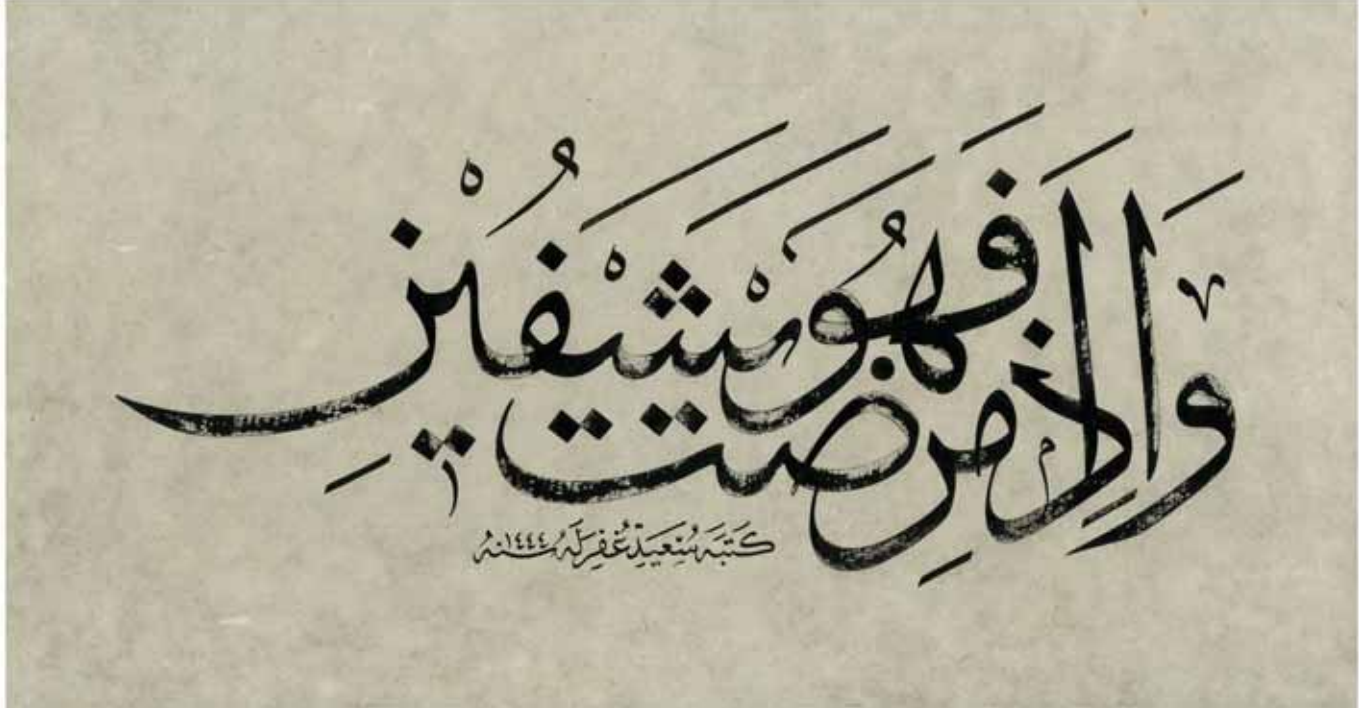 وَإِذَا مَرِضْتُ فَهُوَ يَشْفِينِ
كَتَبَهُ سَعِيد غُفِرَ لَهُ سنة ١٤٤٤